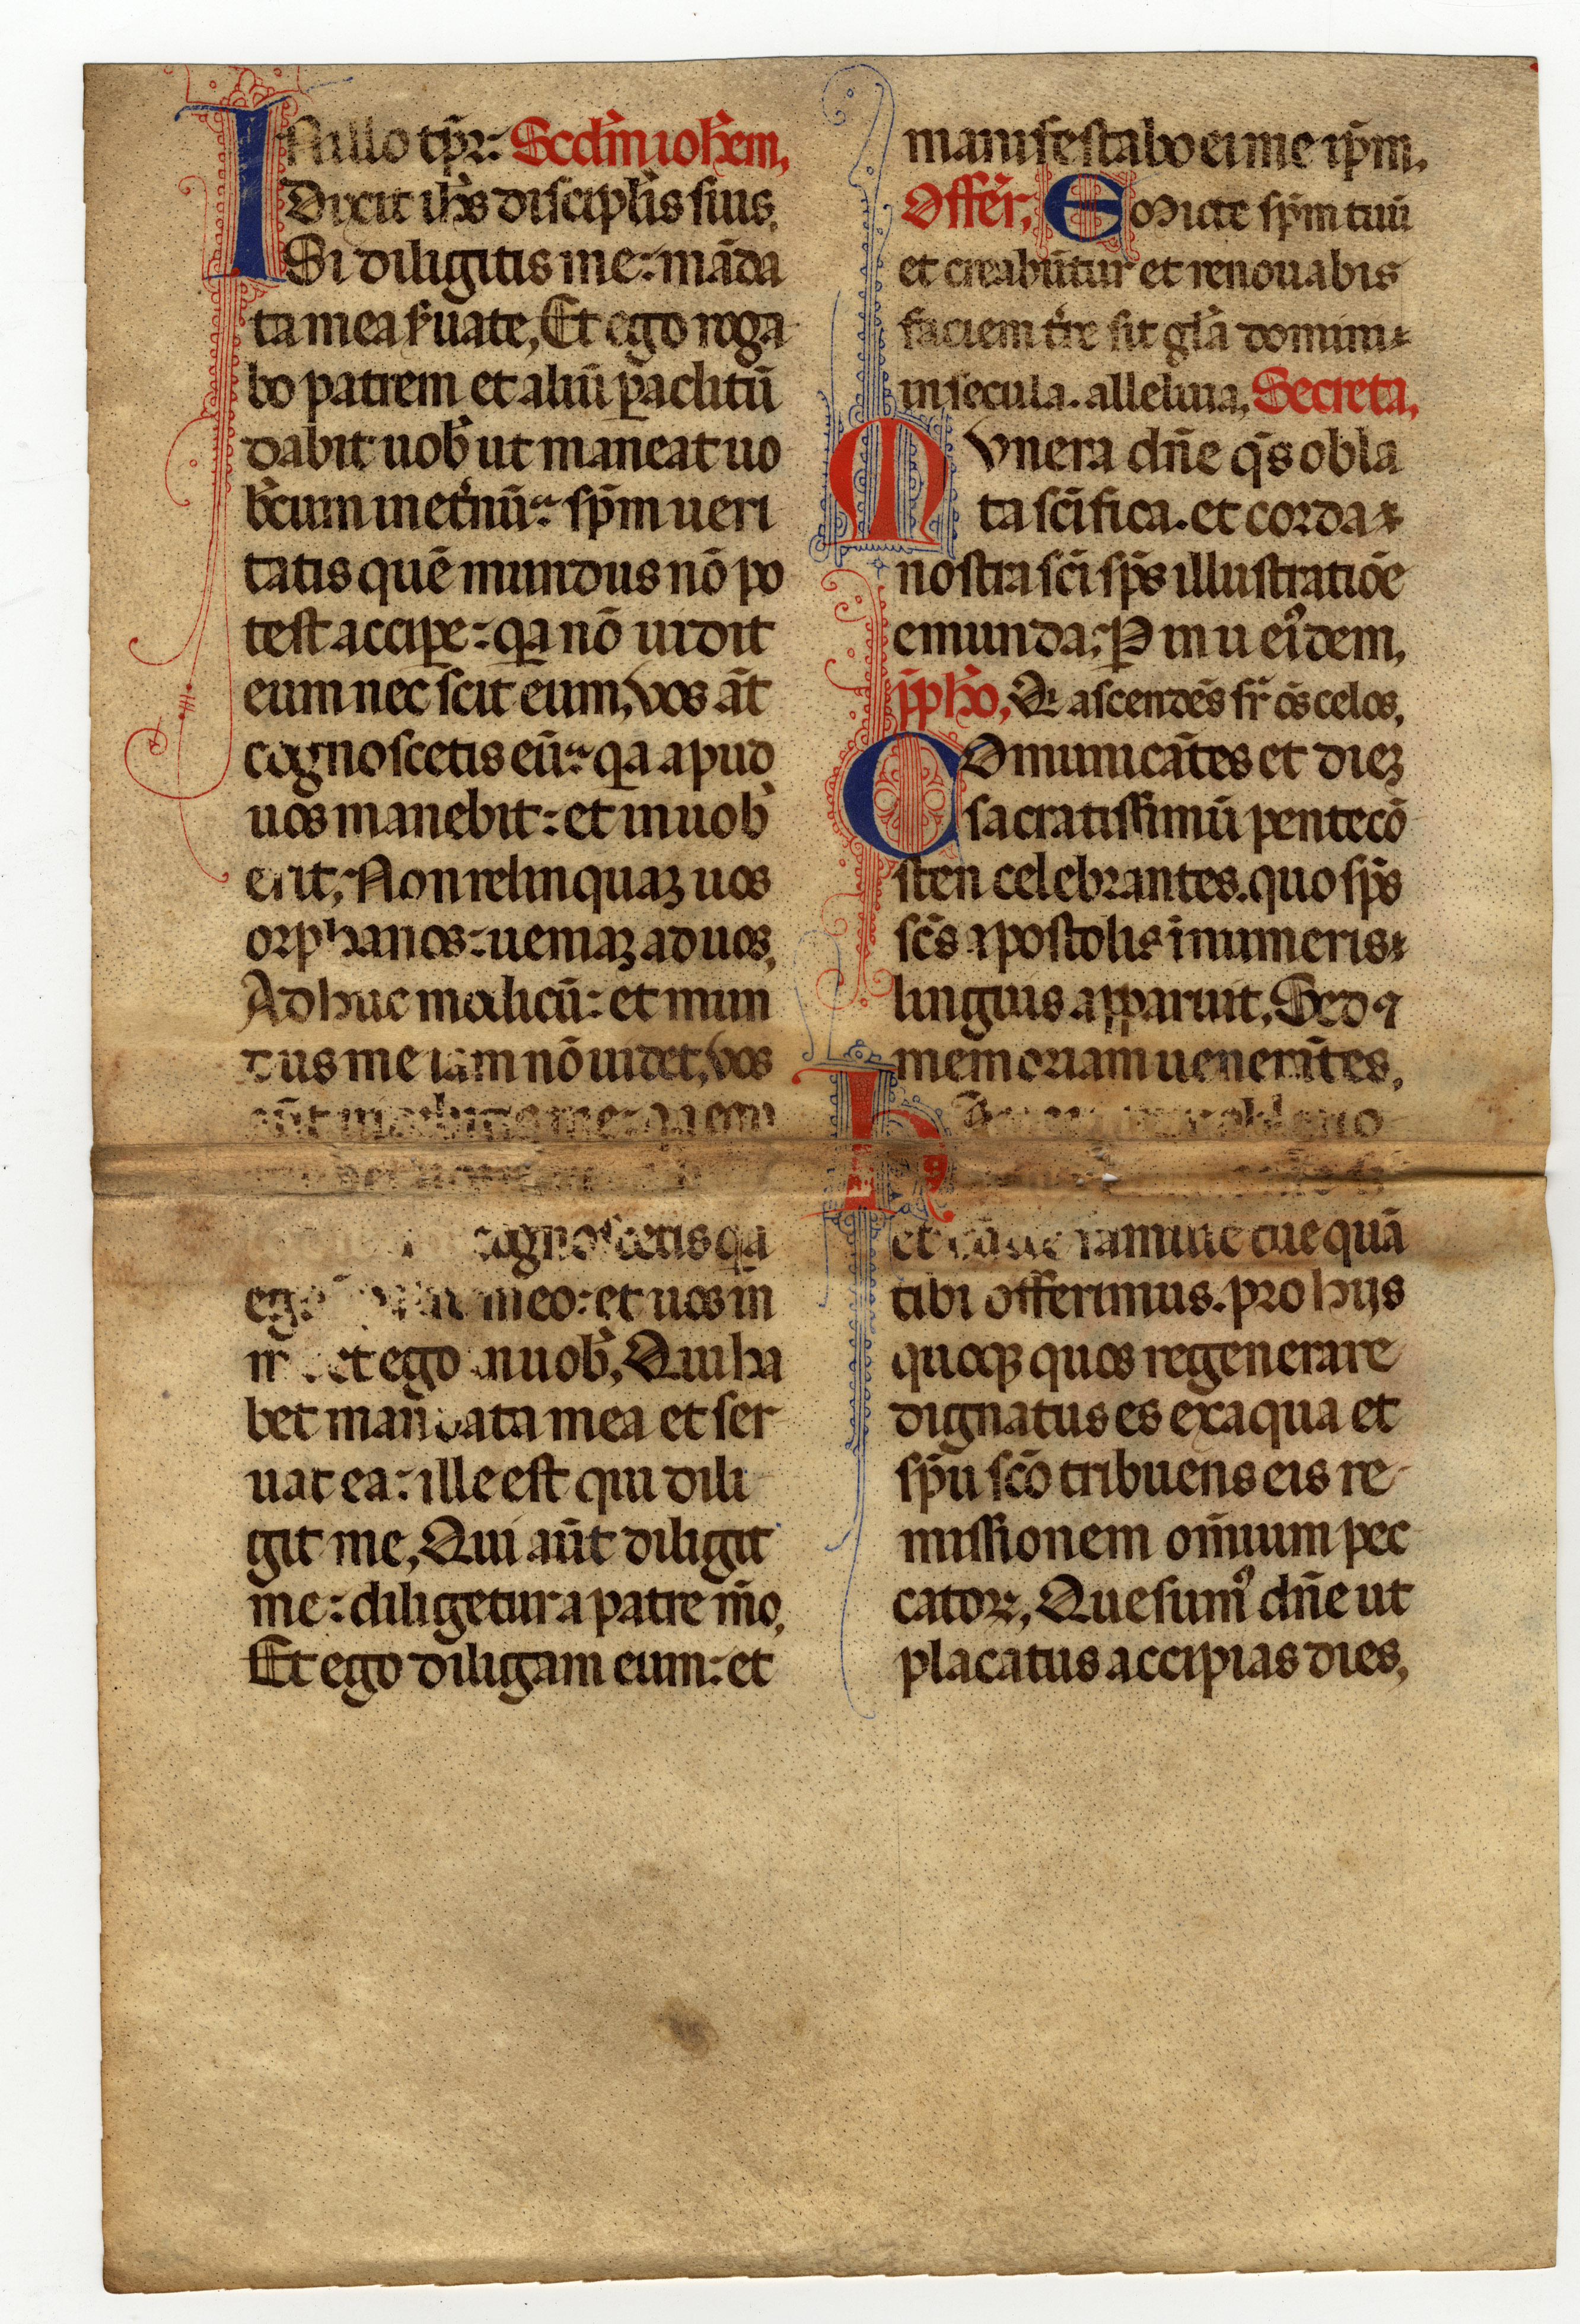 INillo tp̄r: Scd̄m ioh̄em,
Dixit ih̄s discipl̄is suis,
Si diligitis me: mādā
ta mea s̄uate, Et ego roga
bo patrem et aliū p̄aclitū
dabit uob̄ ut maneat uo
b̄cum inet̄nū: sp̄m ueri
tatis quē mundus nō po
test accip̄e: qa nō uidit
eum nec scit eum, Vos āt
cognoscetis eū: qa apud
uos manebit: et in uob̄
erit, Non relinquaꝫ uos
orphanos: ueniaꝫ ad uos,
Adhuc modicū: et mun
dus me iam nō uidet, vos
me:
cognoscetis qa
meo: et uos in
et ego in uob̄, Qui ha
bet mandata mea et ser
uat ea: ille est qui dili
git me, Qui aūt diligit
me: diligetur a patre m̄o,
Et ego diligam eum: et
manifestabo ei me ip̄m,
Offēr, Emicte sp̄m tuū
et creabūtur et renouabis
faciem t̄re sit gl̄a domini
in secula. alleluia, Secreta,
Munera dn̄e qs̄ obla
ta sc̄ifica. et corda
nostra sc̄i sp̄s illustratiōe
emunda, P in u eiꝰdem,
p̄ph̄o, Q ascendēs sr̄ ōs celos,
COmunicātes et dieꝫ
sacratissimū pentecō
sten celebrantes. quo sp̄s
sc̄s apostolis īnumeris
linguis apparuit, Sed ⁊
memoriam uenerātes,
H
et tue quā
tibi offerimus. pro hijs
quoqꝫ quos regenerare
dignatus es ex aqua et
sp̄u sc̄o tribuens eis re
missionem om̄ium pec
catoꝝ, Quesumꝰ dn̄e ut
placatus accipias dies,